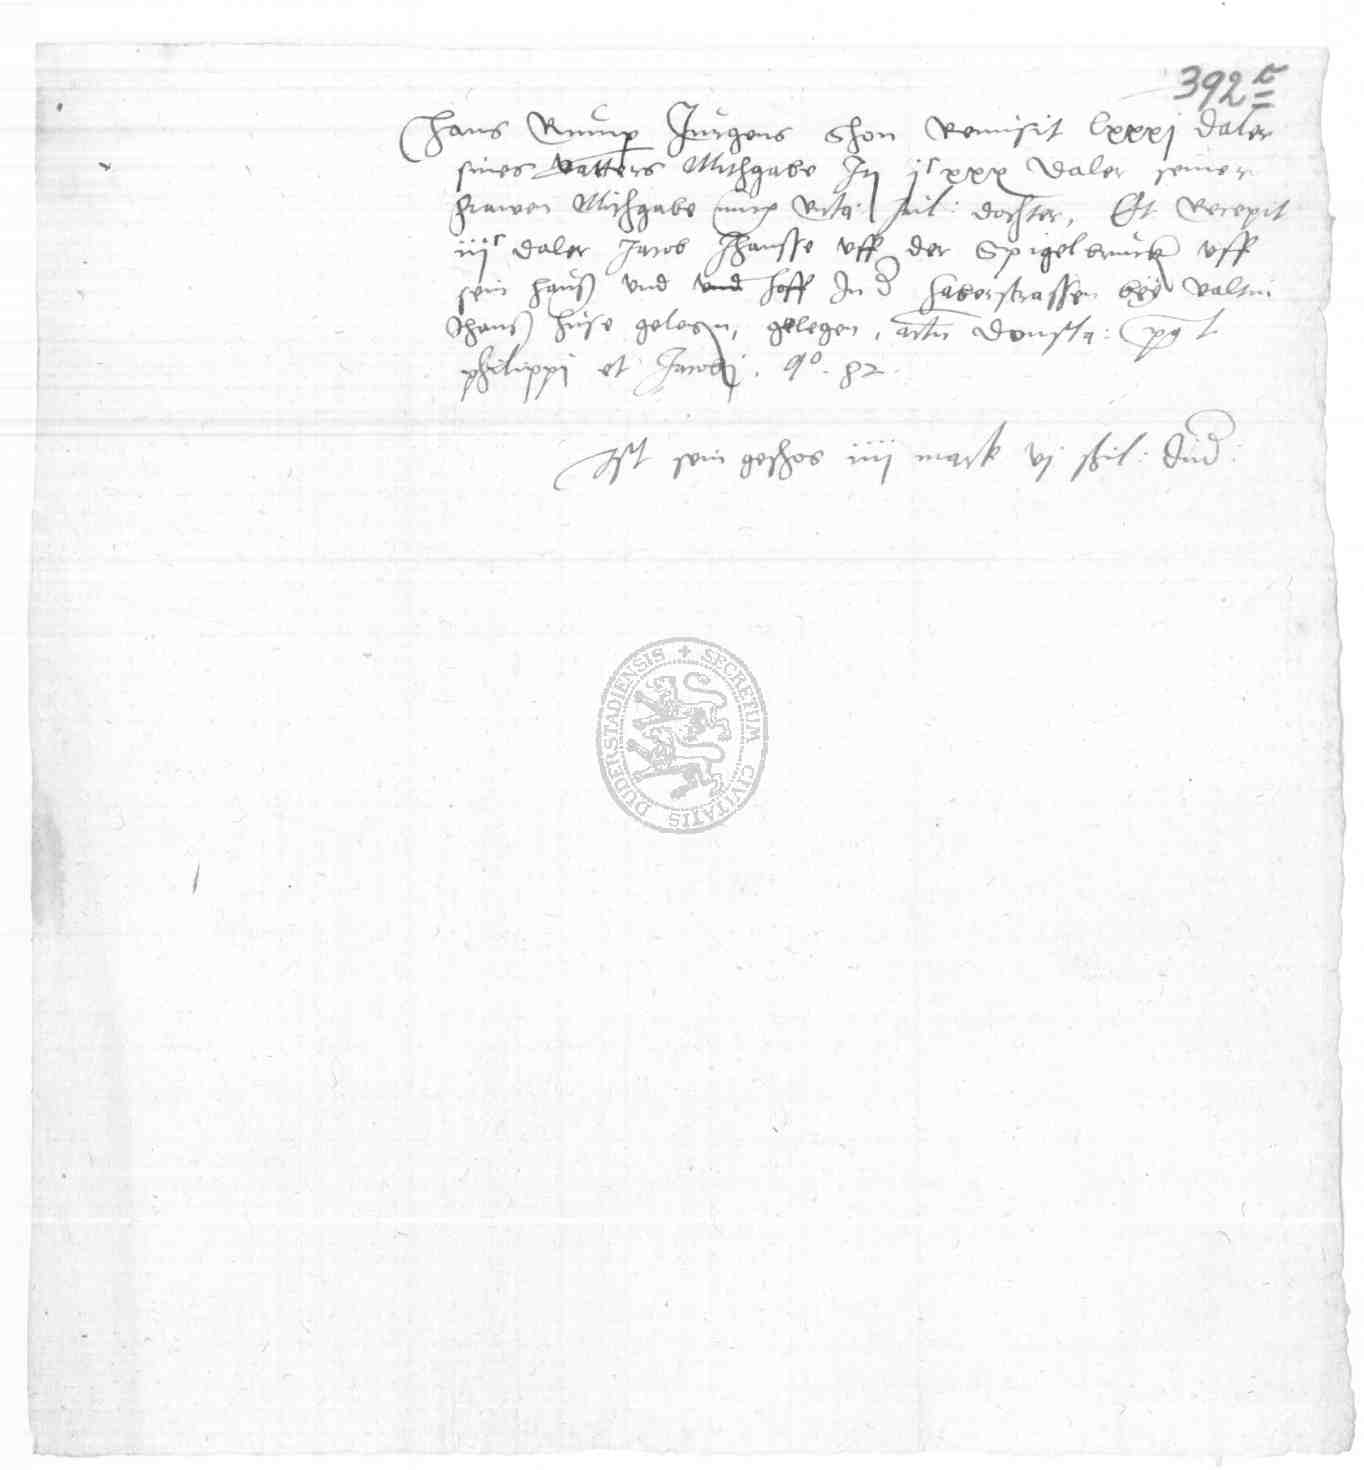 392 c
Hans Rump Jurgens Shon Remisit lxxxj daler
sines vatters Mithgabe In jc xxx daler seiner
frawen Mithgabe dochter, Et Recepit
iijc daler Jacob Hansse uff der Spigelbruck uff
sein hauß und und hoff In d haberstrassen bey Valtin
Hanß huse gelegen, gelegen, actu Donstq:
philippi et Jacobj. Ao. 82.
Ist sein geshos iiij mark vj shil: dud:
DUDERSTADIENSIS + SECRETUM CIVITATIS